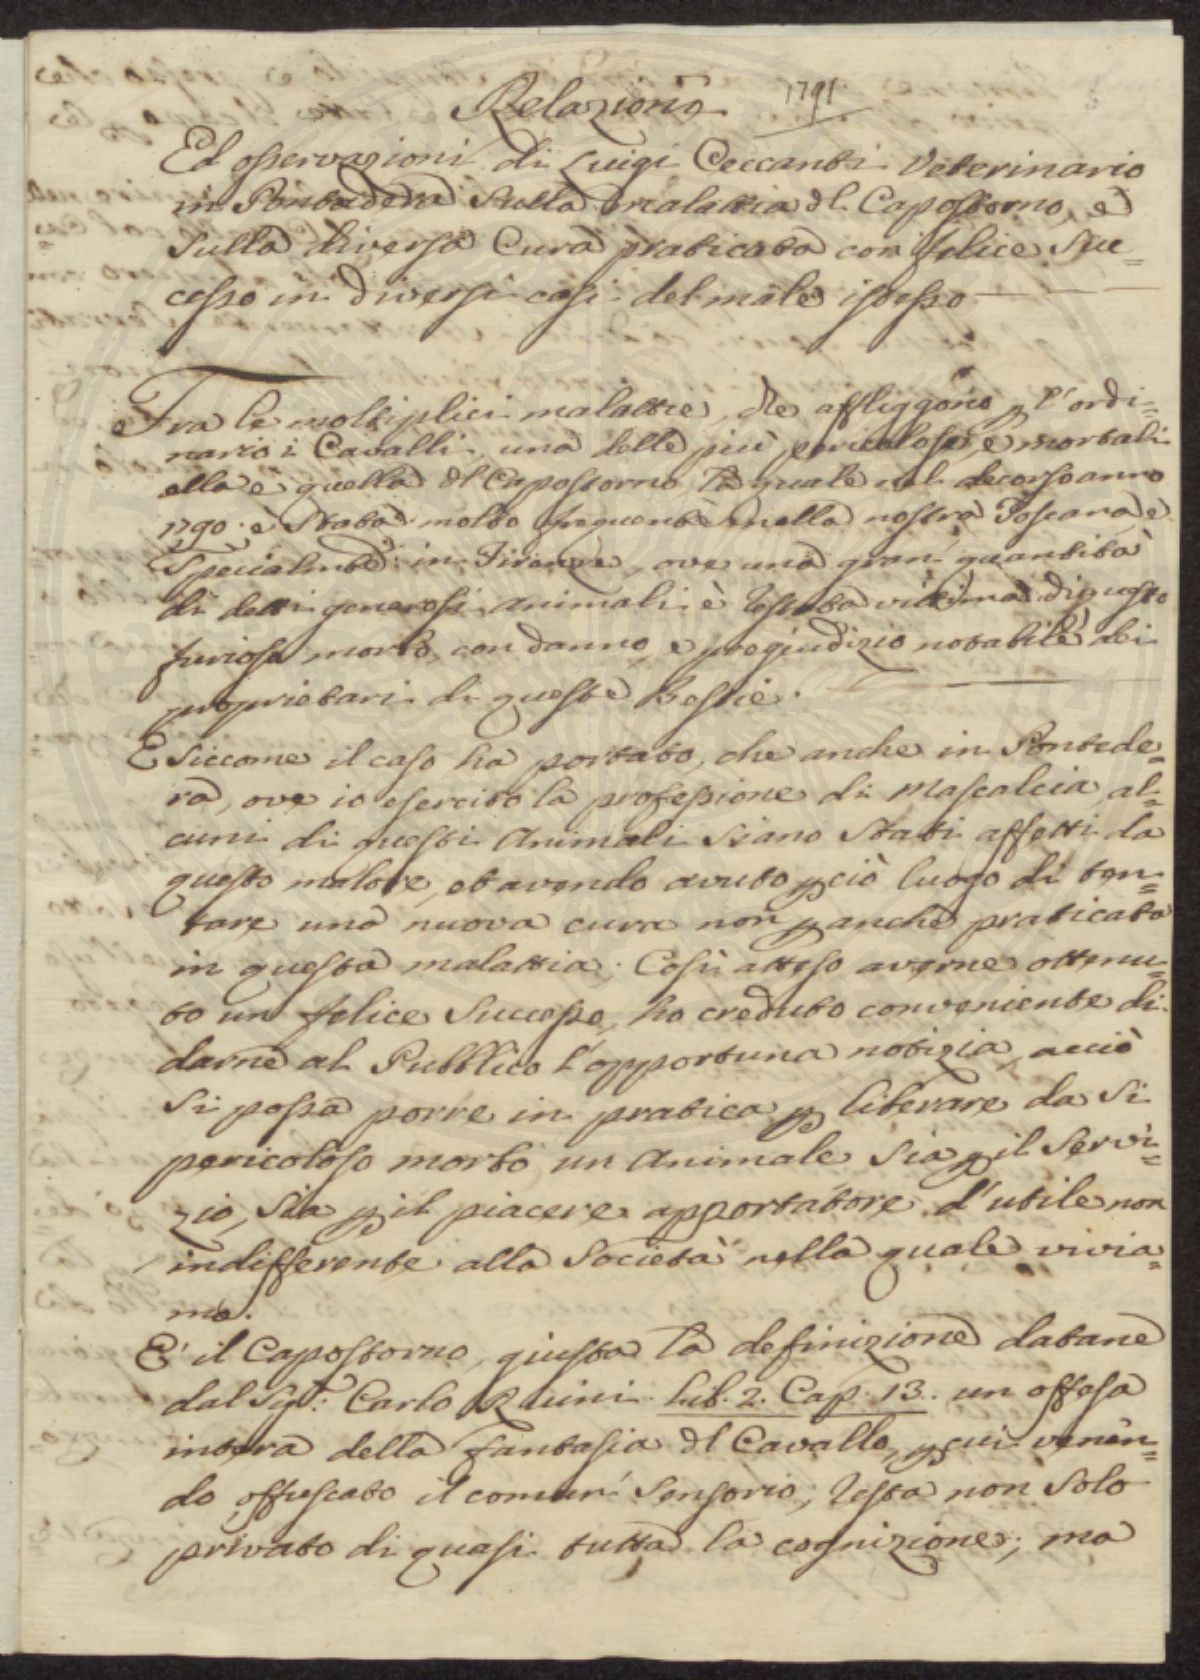 Relazione 1791.
Ed osservazioni di Luigi Ceccanti Veterinario
in Pontedera Sulla malattia dl Capostorno, e
Sulla diversa Cura praticata con felice Suc=
cesso in diversi casi del male istesso
Fra le moltiplici malattie, che affliggono p l'ordi=
nario i Cavalli, una delle più pericolose, e mortali
ella è quella dl Capostorno, la quale nel decorso anno
1790. è Stata molto frequente nella nostra Toscana, e
Specialmte in Firenze, ove una gran quantità
di detti generosi animali è restata vittima di questo
furioso morbo, con danno, e pregiudizio notabile dei
proprietari di queste Bestie.
E Siccome il caso ha portato, che anche in Pontede=
ra, ove io esercito la professione di Mascalcia, al=
cuni di questi Animali Siano Stati affetti da
questo malore, et avendo avuto pciò luogo di ten=
tare una nuova cura non p anche praticata
in questa malattia. Così atteso averne ottenu=
to un felice Successo, ho creduto conveniente di
darne al Pubblico l'opportuna notizia, acciò
Si possa porre in pratica, p liberare da Si
pericoloso morbo un Animale Sia p il Servi=
zio, Sia p il piacere apportatore d'utile non
indifferente alla Società nella quale vivia=
mo.
E' il Capostorno, giusta la definizione datane
dal Sigr. Carlo Ruini lib. 2. Cap. 13. un offesa
intera della fantasia dl Cavallo, p cui venen=
do offuscato il comun Sensorio, resta non Solo
privato di quasi tutta la cognizione; ma